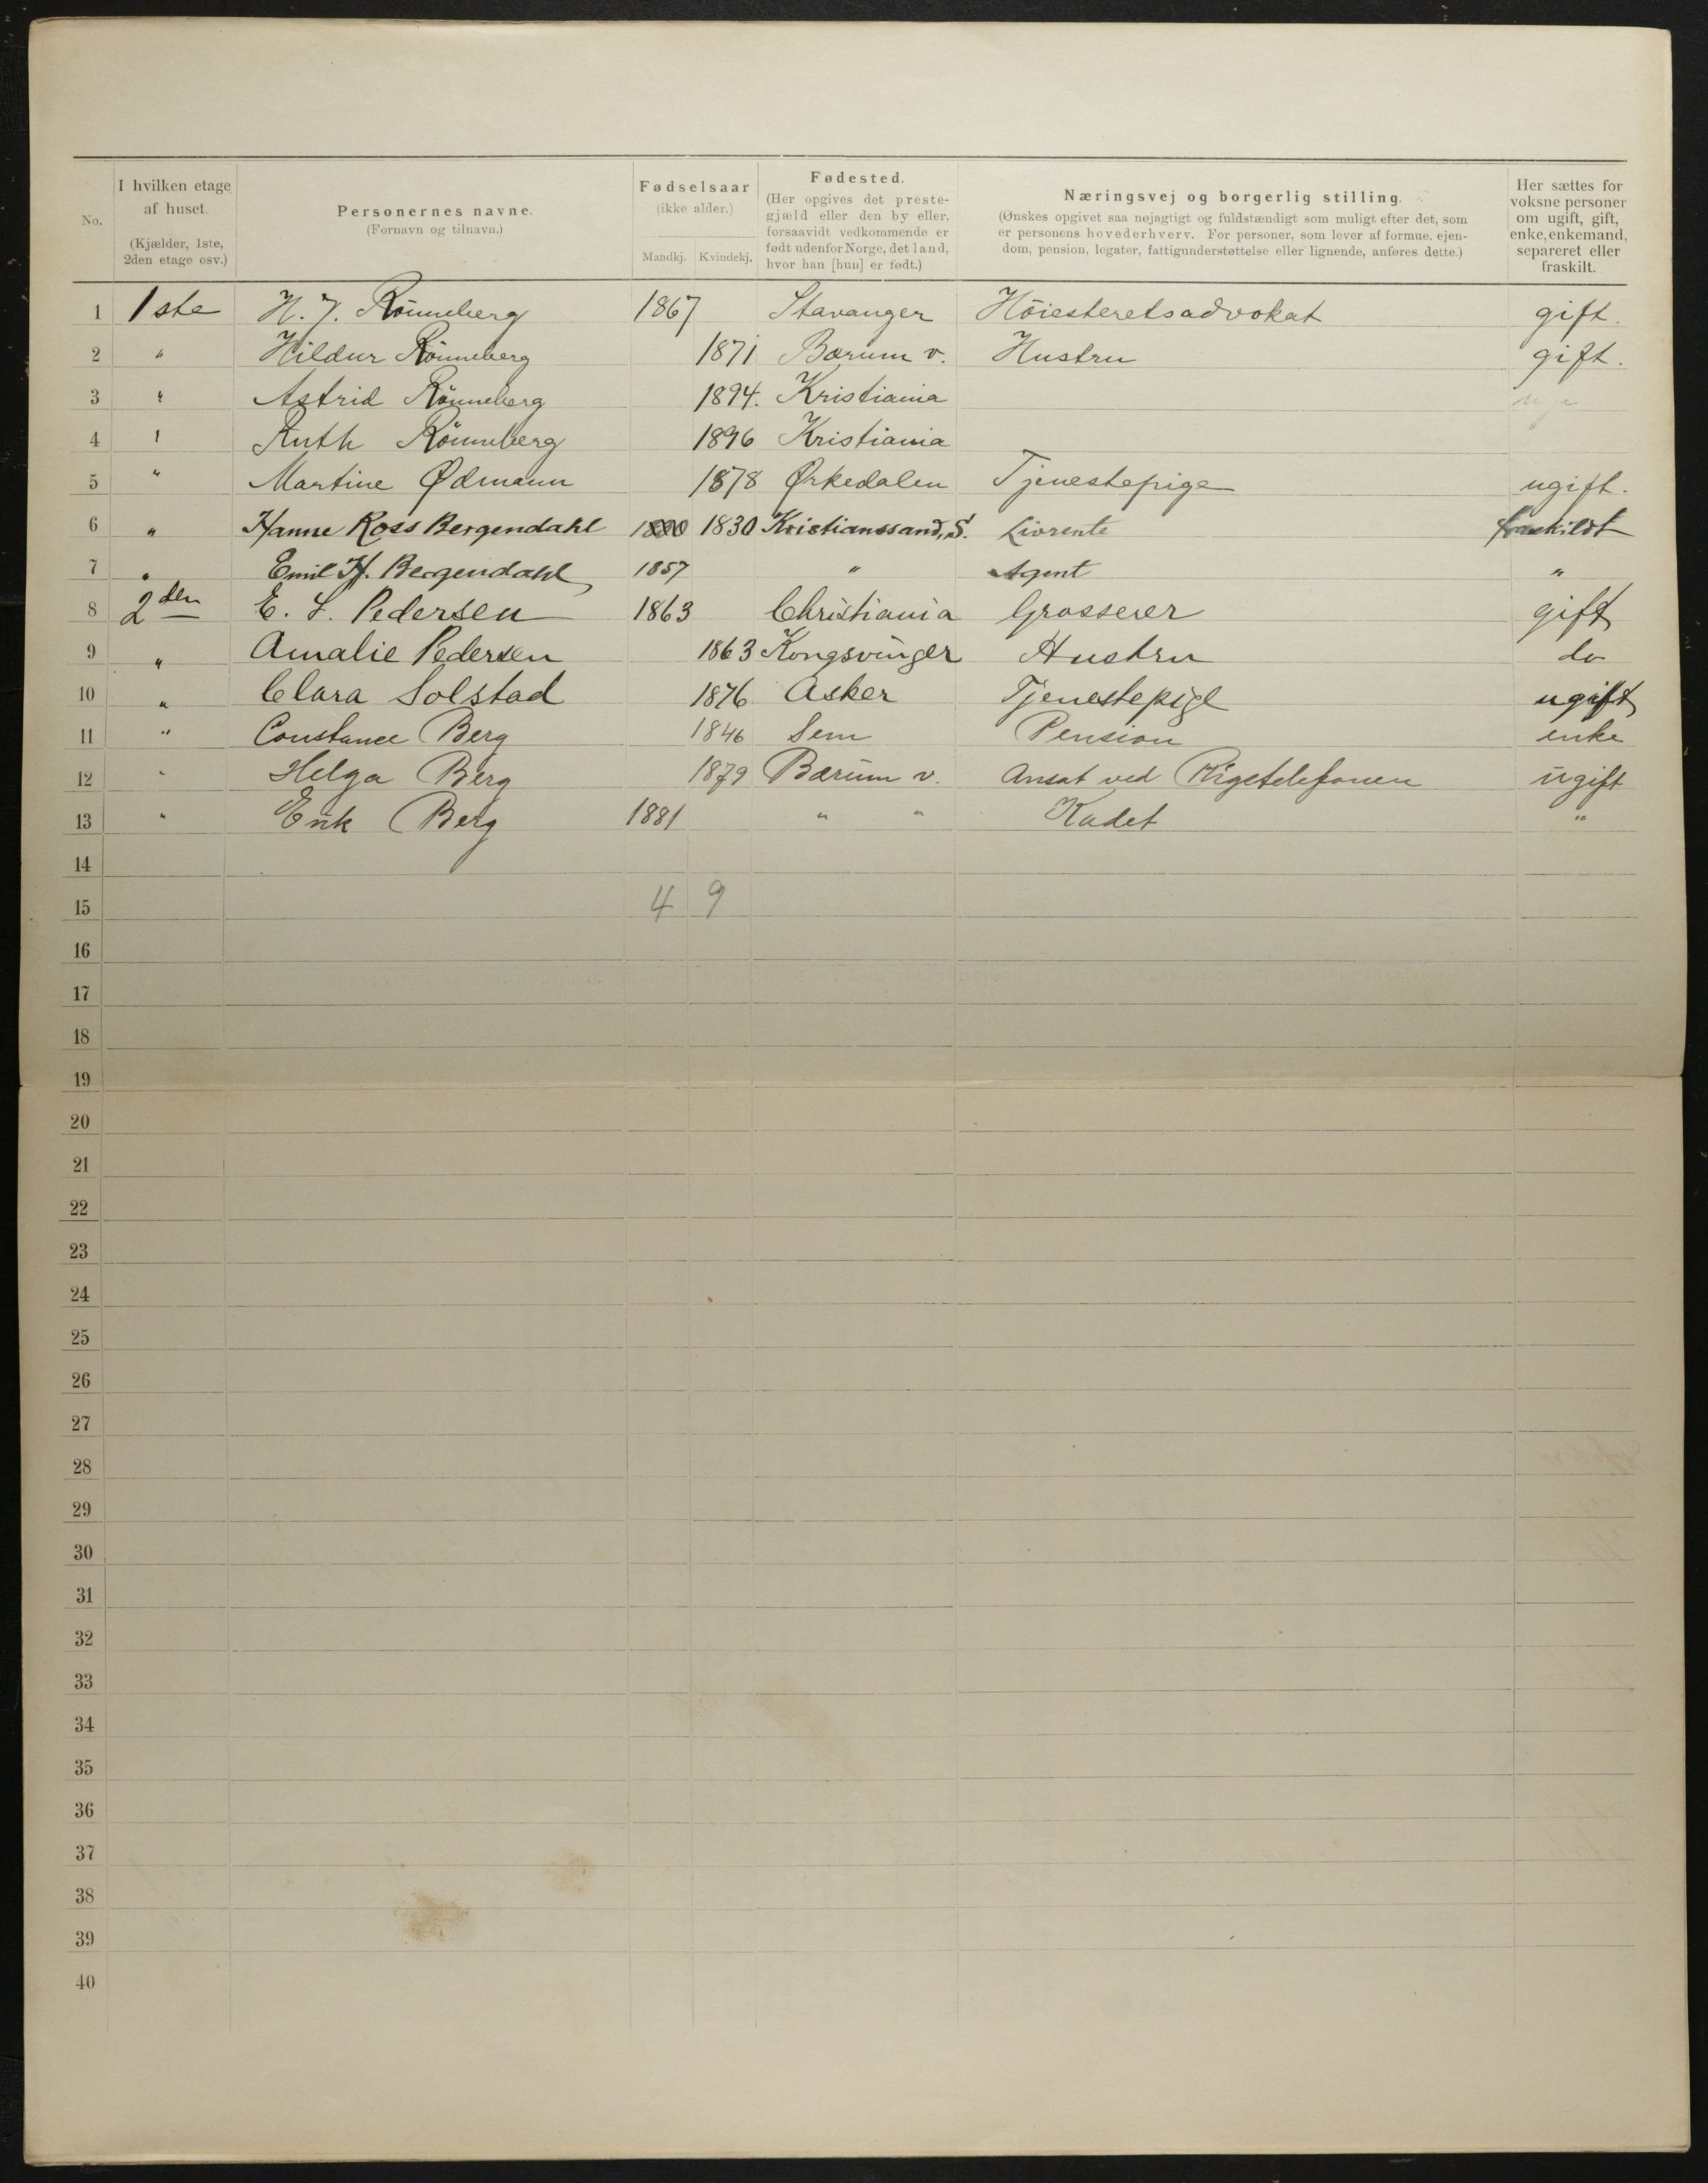 No. I hvilken etage af huset. (Kjælder, 1ste, 2den etage osv.) Personernes navne. (Fornavn og tilnavn.) Fødselsaar (ikke alder.) Mandkj. Kvindekj. Fødested. (Her opgives det prestegjæld eller den by eller, forsaavidt vedkommende er født udenfor Norge, det land, hvor han [hun] er født.) Næringsvej og borgerlig stilling. (Ønskes opgivet saa nøjagtigt og fuldstændigt som muligt efter det, som er personens hovederhverv. For personer, som lever af formue, ejendom, pension, legater, fattigunderstøttelse eller lignende, anføres dette.) Her sættes for voksne personer om ugift, gift, enke, enkemand, separeret eller fraskilt.
1 1ste H. J. Rönneberg 1867 Stavanger Höiesteretsadvokat gift.
2 " Hildur Rönneberg 1871 Bærum v. Hustru gift.
3 " Astrid Rönneberg 1894. Kristiania
4 " Ruth Rönneberg 1896 Kristiania
5 " Martine Ødmann 1878 Ørkedalen Tjenestepige ugift.
6 " Hanne Ross Bergendahl 1830 Kristianssand, S. Livrente fraskildt
7 " Emil H. Bergendahl 1857 " Agent "
8 2den E. L. Pedersen 1863 Christiania Grosserer gift
9 " Amalie Pedersen 1863 Kongsvinger Hustru do
10 " Clara Solstad 1876 Asker Tjenestepige ugift
11 " Constance Berg 1846 Sem Pension enke
12 " Helga Berg 1879 Bærum v. Ansat ved Rigstelefonen ugift
13 " Erik Berg 1881 " " Kadet "
14
15 4 9
16
17
18
19
20
21
22
23
24
25
26
27
28
29
30
31
32
33
34
35
36
37
38
39
40